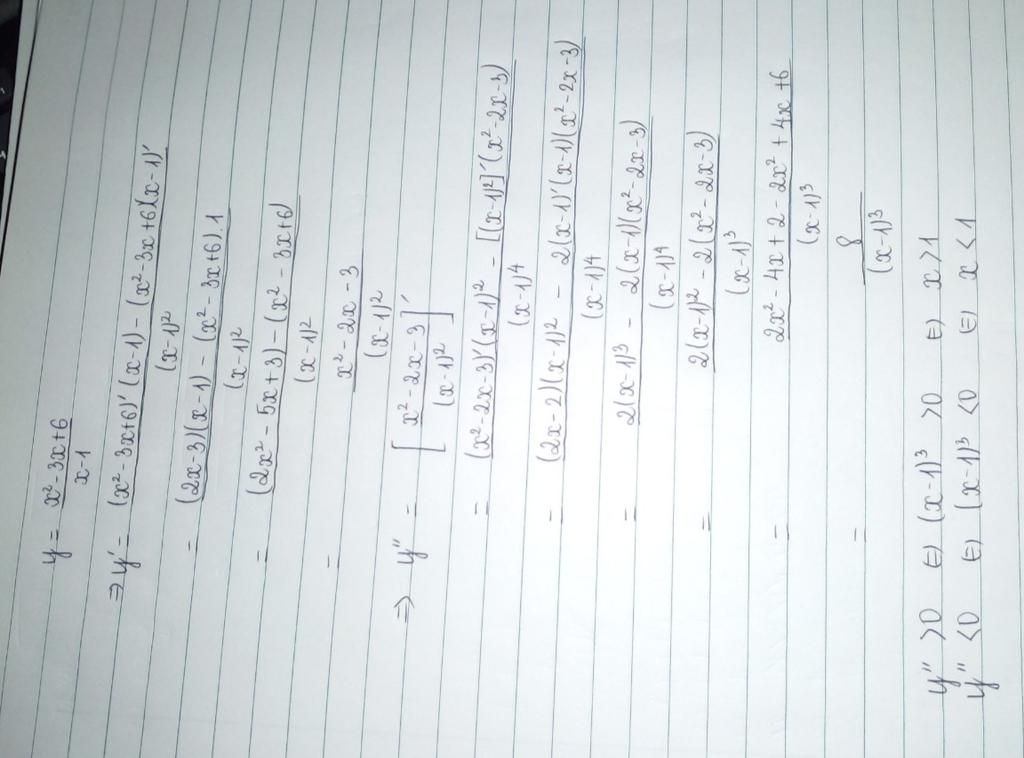 y = (x² - 3x + 6)/(x - 1)
⇒ y' = ((x² - 3x + 6)'(x - 1) - (x² - 3x + 6)(x - 1)')/(x - 1)²
= ((2x - 3)(x - 1) - (x² - 3x + 6).1)/(x - 1)²
= ((2x² - 5x + 3) - (x² - 3x + 6))/(x - 1)²
= (x² - 2x - 3)/(x - 1)²
⇒ y'' = [(x² - 2x - 3)/(x - 1)²]'
= ((x² - 2x - 3)'(x - 1)² - [(x - 1)²]'(x² - 2x - 3))/(x - 1)⁴
= ((2x - 2)(x - 1)² - 2(x - 1)'(x - 1)(x² - 2x - 3))/(x - 1)⁴
= (2(x - 1)³ - 2(x - 1)(x² - 2x - 3))/(x - 1)⁴
= (2(x - 1)² - 2(x² - 2x - 3))/(x - 1)³
= (2x² - 4x + 2 - 2x² + 4x + 6)/(x - 1)³
= 8/(x - 1)³
y'' > 0 ⇔ (x - 1)³ > 0 ⇔ x > 1
y'' < 0 ⇔ (x - 1)³ < 0 ⇔ x < 1